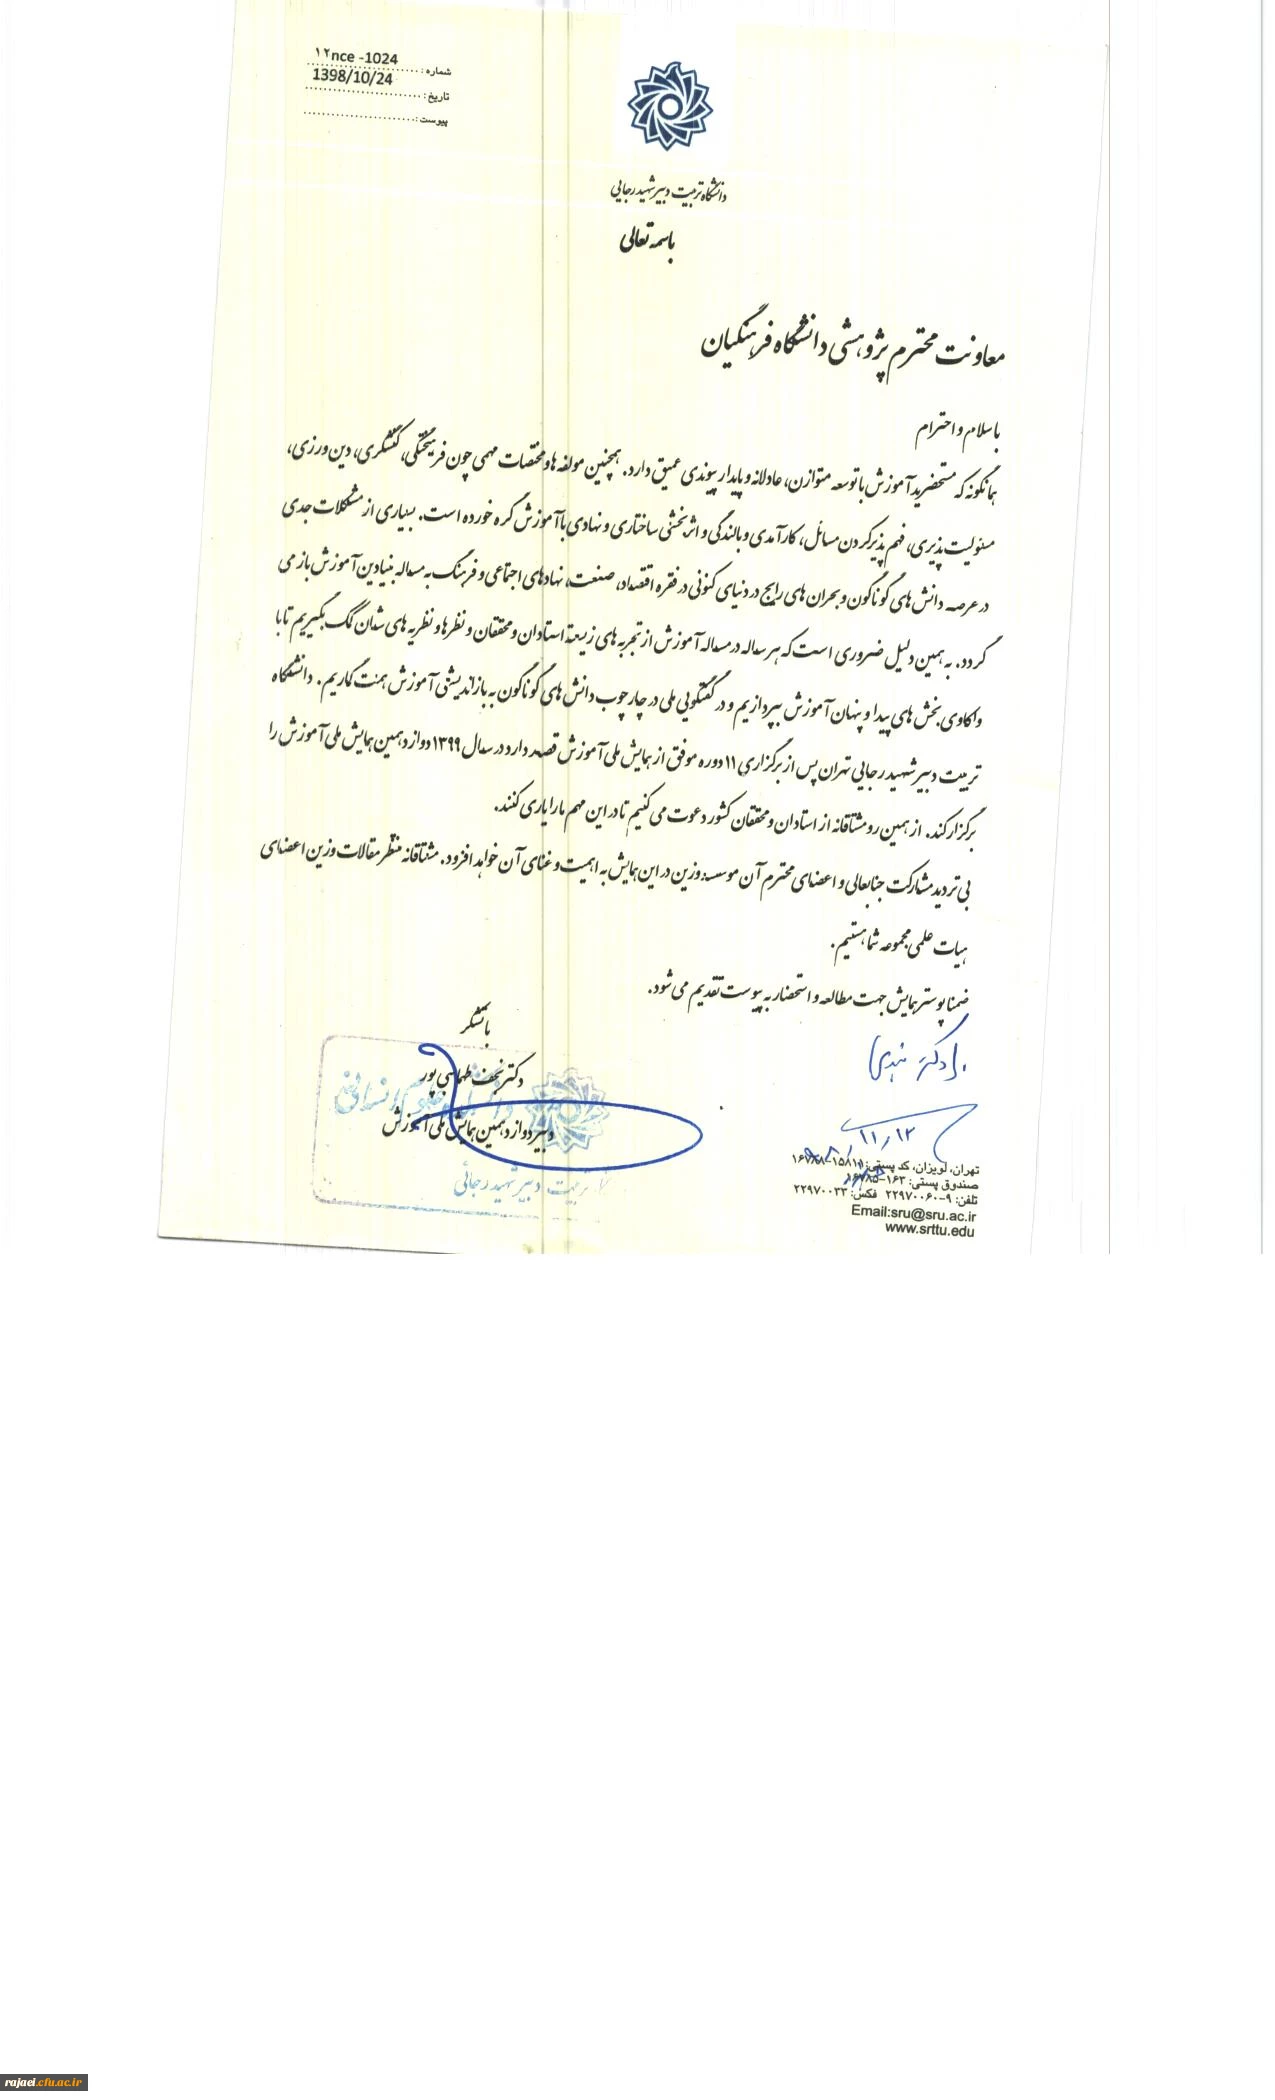 شماره : ۱۲nce -1024
تاریخ: 1398/10/24
پیوست :
دانشگاه تربیت دبیر شهید رجایی
باسمه تعالی
معاونت محترم پژوهشی دانشگاه فرهنگیان
با سلام و احترام
همانگونه که مستحضرید آموزش با توسعه متوازن، عادلانه و پایدار پیوندی عمیق دارد. همچنین مولفه ها و مختصات مهمی چون فرهیختگی، کنشگری، دین ورزی،
مسئولیت پذیری، فهم پذیر کردن مسائل، کارآمدی و بالندگی و اثربخشی ساختاری و نهادی با آموزش گره خورده است. بسیاری از مشکلات جدی
در عرصه دانش های گوناگون و بحران های رایج در دنیای کنونی در فقره اقتصاد، صنعت، نهادهای اجتماعی و فرهنگ به مساله بنیادین آموزش باز می
گردد. به همین دلیل ضروری است که هر ساله در مساله آموزش از تجربه های زیسته استادان و محققان و نظرها و نظریه های شان کمک بگیریم تا با
واکاوی بخش های پیدا و پنهان آموزش بپردازیم و در گفتگویی ملی در چارچوب دانش های گوناگون به بازاندیشی آموزش همت گماریم. دانشگاه
تربیت دبیر شهید رجایی تهران پس از برگزاری ۱۱ دوره موفق از همایش ملی آموزش قصد دارد در سال ۱۳۹۹ دوازدهمین همایش ملی آموزش را
برگزار کند. از همین رو مشتاقانه از استادان و محققان کشور دعوت می کنیم تا در این مهم ما را یاری کنند.
بی تردید مشارکت جنابعالی و اعضای محترم آن موسسه وزین در این همایش به اهمیت و غنای آن خواهد افزود. مشتاقانه منتظر مقالات وزین اعضای
هیات علمی مجموعه شما هستیم.
ضمنا پوستر همایش جهت مطالعه و استحضار به پیوست تقدیم می شود.
با تشکر
دکتر نجف طهماسبی پور
دبیر دوازدهمین همایش ملی آموزش
علوم انسانی
تربیت دبیر شهید رجائی
۱۱/۱۲
تهران، لویزان، کد پستی: ۱۵۸۱۱-۱۶۷۸۸
صندوق پستی: ۱۶۳-۱۶۷۸۵
تلفن: ۹-۲۲۹۷۰۰۶۰ فکس: ۲۲۹۷۰۰۳۳
Email:sru@sru.ac.ir
www.srttu.edu
rajaei.cfu.ac.ir